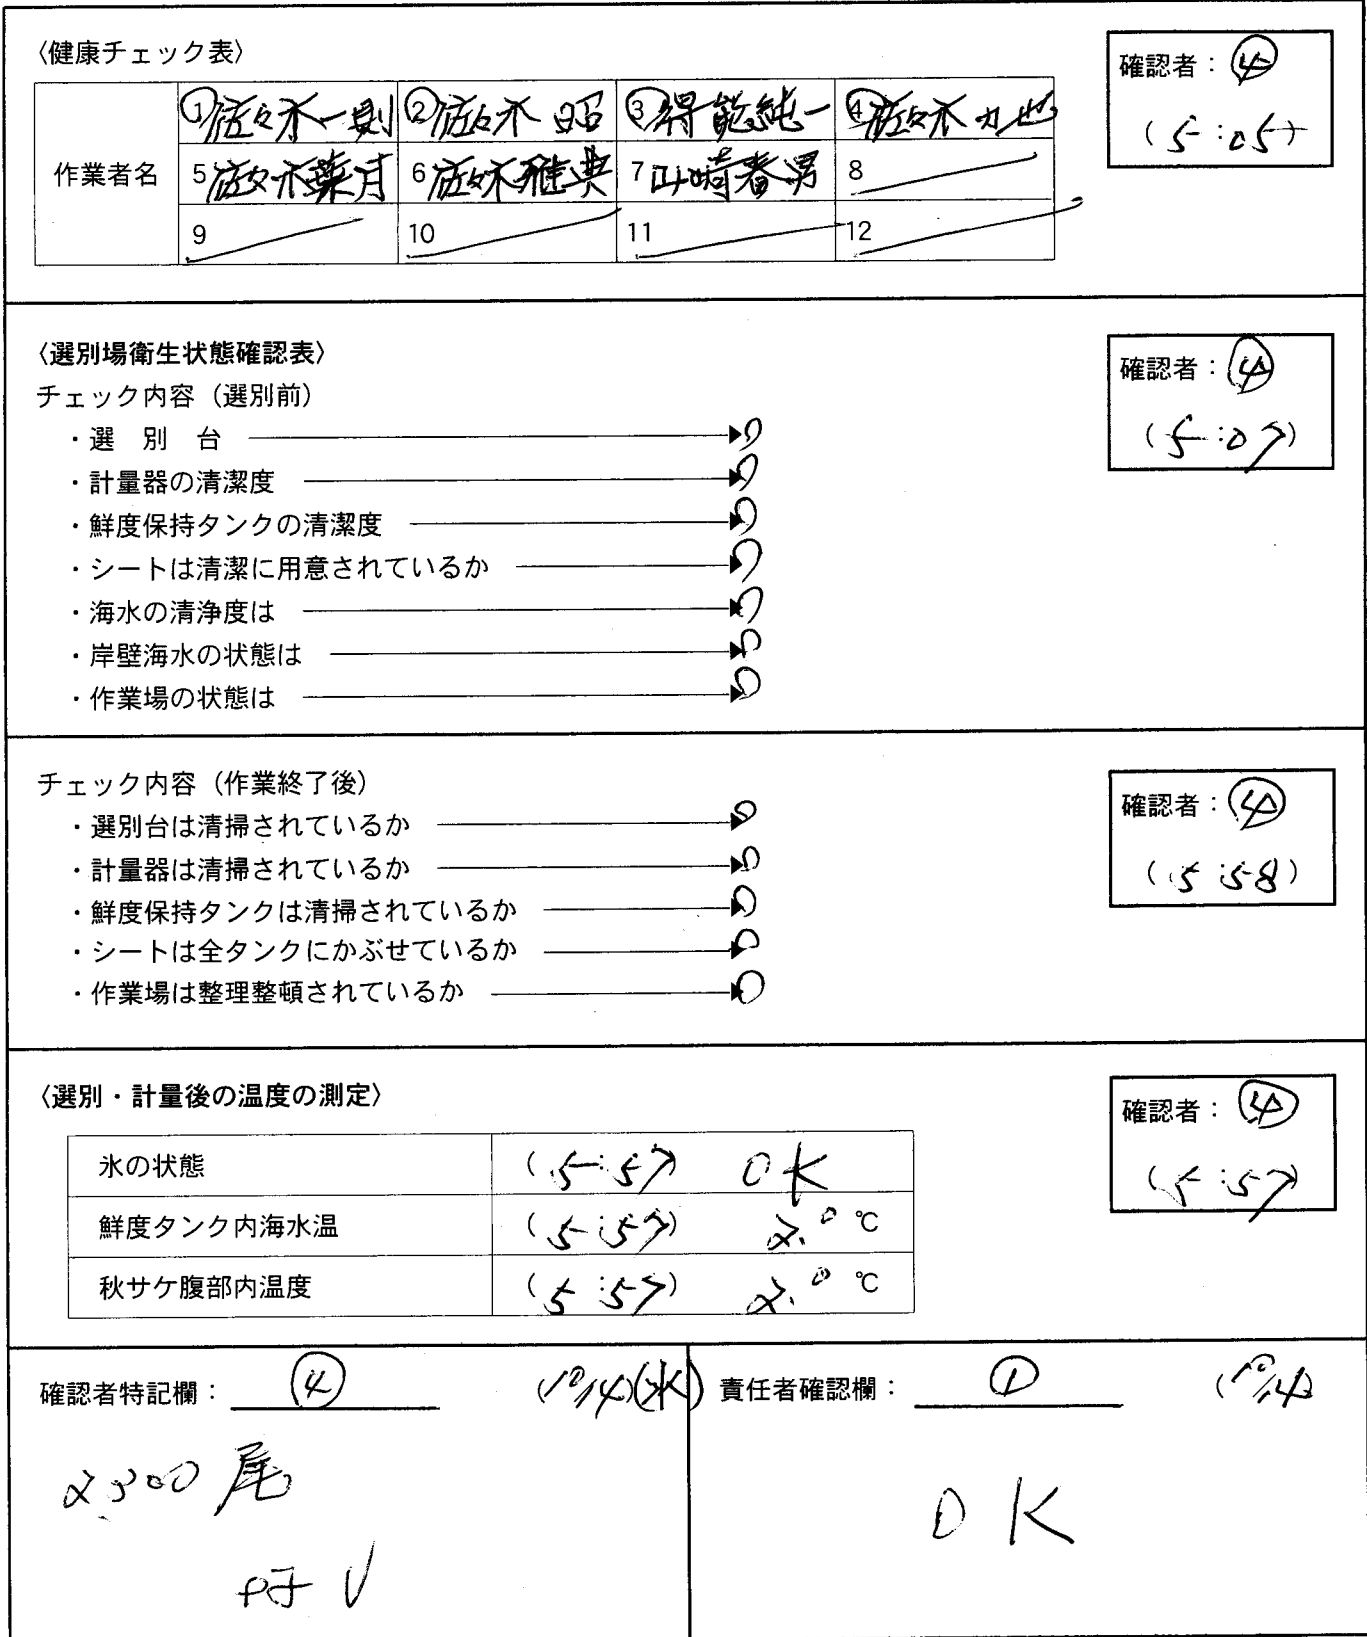 〈健康チェック表〉
確認者：④
(5:05)
作業者名
①佐々木一則 ②佐々木 昭 ③得能純一 ④佐々木力也
5佐々木葉月 6佐々木雅典 7山崎春男 8
9 10 11 12
〈選別場衛生状態確認表〉
確認者：④
(5:07)
チェック内容（選別前）
・選別台 ○
・計量器の清潔度 ○
・鮮度保持タンクの清潔度 ○
・シートは清潔に用意されているか ○
・海水の清浄度は ○
・岸壁海水の状態は ○
・作業場の状態は ○
チェック内容（作業終了後）
確認者：④
(5:58)
・選別台は清掃されているか ○
・計量器は清掃されているか ○
・鮮度保持タンクは清掃されているか ○
・シートは全タンクにかぶせているか ○
・作業場は整理整頓されているか ○
〈選別・計量後の温度の測定〉
確認者：④
(5:57)
氷の状態 (5:57) OK
鮮度タンク内海水温 (5:57) 2.0 ℃
秋サケ腹部内温度 (5:57) 2.0 ℃
確認者特記欄：④ (10/14)(水)
2300尾
責任者確認欄：① (10/14)
OK